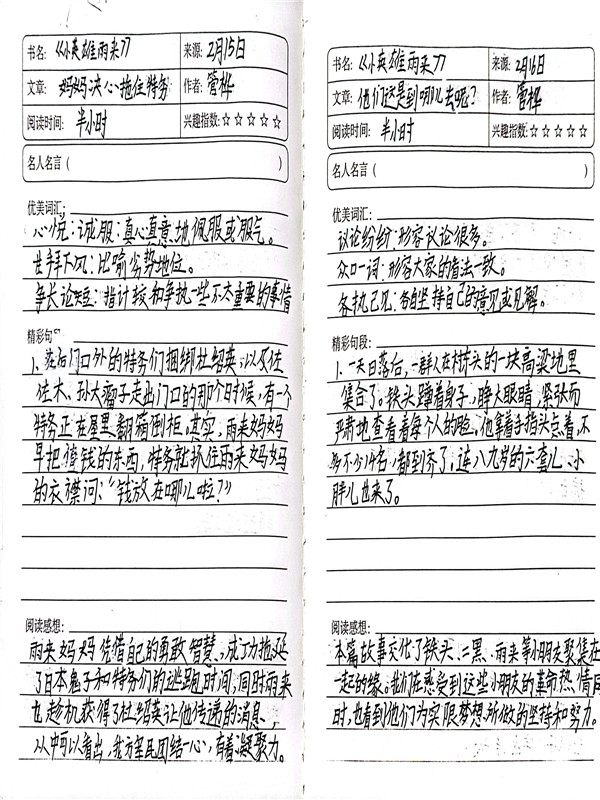 书名：《小英雄雨来》
来源：2月15日
文章：妈妈决心拖住特务
作者：管桦
阅读时间：半小时
兴趣指数：☆☆☆☆☆
名人名言（ ）
优美词汇：
心悦：诚服：真心真意地佩服或服气。
甘拜下风：比喻劣势地位。
争长论短：指计较和争执一些不太重要的事情
精彩句
1、在门口外的特务们捆绑杜绍英，以及佐
佐木、孙大瘤子走出门口的那个时候，有一个
特务正在屋里翻箱倒柜，其实，雨来妈妈
早把值钱的东西，特务就抓住雨来妈妈
的衣襟问："钱放在哪儿啦？"
阅读感想：
雨来妈妈凭借自己的勇敢智慧，成功拖延
了日本鬼子和特务们的逃跑时间，同时雨来
也趁机获得了杜绍英让他传递的消息、
从中可以看出，我方军民团结一心，有着凝聚力。
书名：《小英雄雨来》
来源：2月16日
文章：他们这是到哪儿去呢？
作者：管桦
阅读时间：半小时
兴趣指数：☆☆☆☆☆
名人名言（ ）
优美词汇：
议论纷纷：形容议论很多。
众口一词：形容大家的看法一致。
各执己见：各自坚持自己的意见或见解。
精彩句段：
1、一天日落后，一群人在村头的一块高粱地里
集合了。铁头蹲着身子，睁大眼睛，紧张而
严肃地查看着每个人的脸，他拿着手指头点着，不
多不少14名，都到齐了，连八九岁的六套儿、小
胖儿也来了。
阅读感想：
本篇故事交代了铁头、二黑、雨来等小朋友聚集在
一起的缘。我们在感受到这些小朋友的革命热情同
时，也看到他们为实现梦想，所做的坚持和努力。